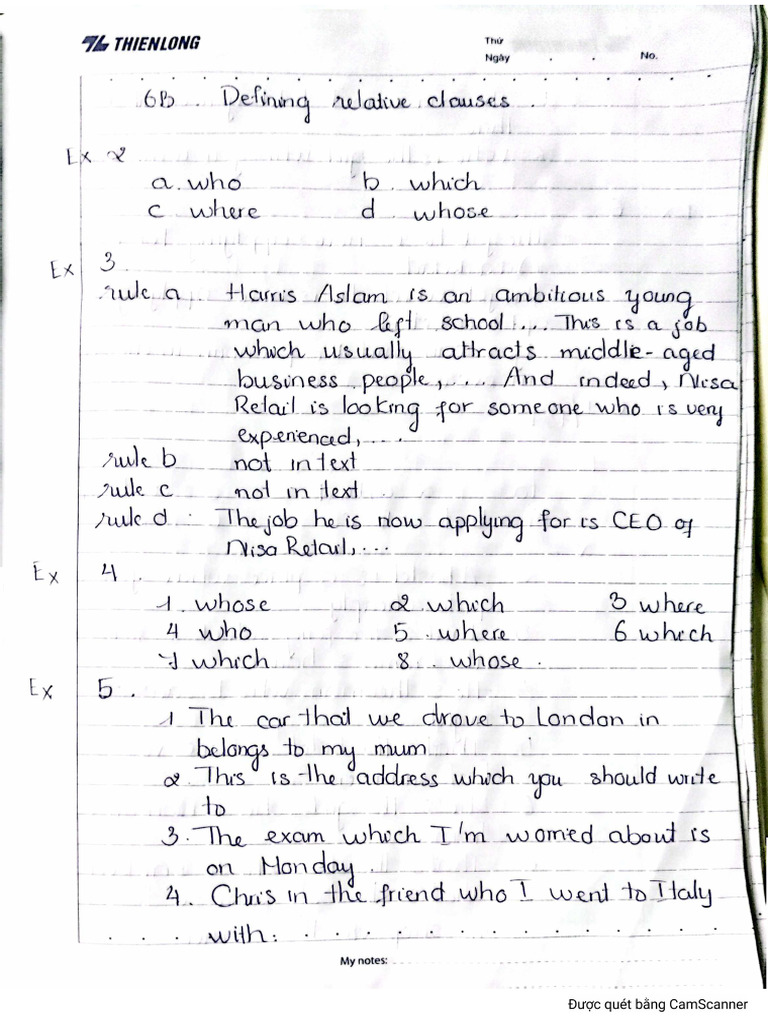 THIENLONG
Thứ
Ngày . . No.
6B. Defining relative clauses.
Ex 2
a. who b. which
c where d whose
Ex 3
rule a Harris Aslam is an ambitious young
man who left school.... This is a job
which usually attracts middle-aged
business people,.... And indeed, Nisa
Retail is looking for someone who is very
experienced,....
rule b not in text
rule c not in text
rule d : The job he is now applying for is CEO of
Nisa Retail,...
Ex 4.
1. whose 2 which 3 where
4 who 5. where 6 which
7 which 8. whose.
Ex 5.
1 The car that we drove to London in
belongs to my mum
2. This is the address which you should write
to
3. The exam which I'm worried about is
on Monday.
4. Chris in the friend who I went to Italy
with.
My notes:
Được quét bằng CamScanner